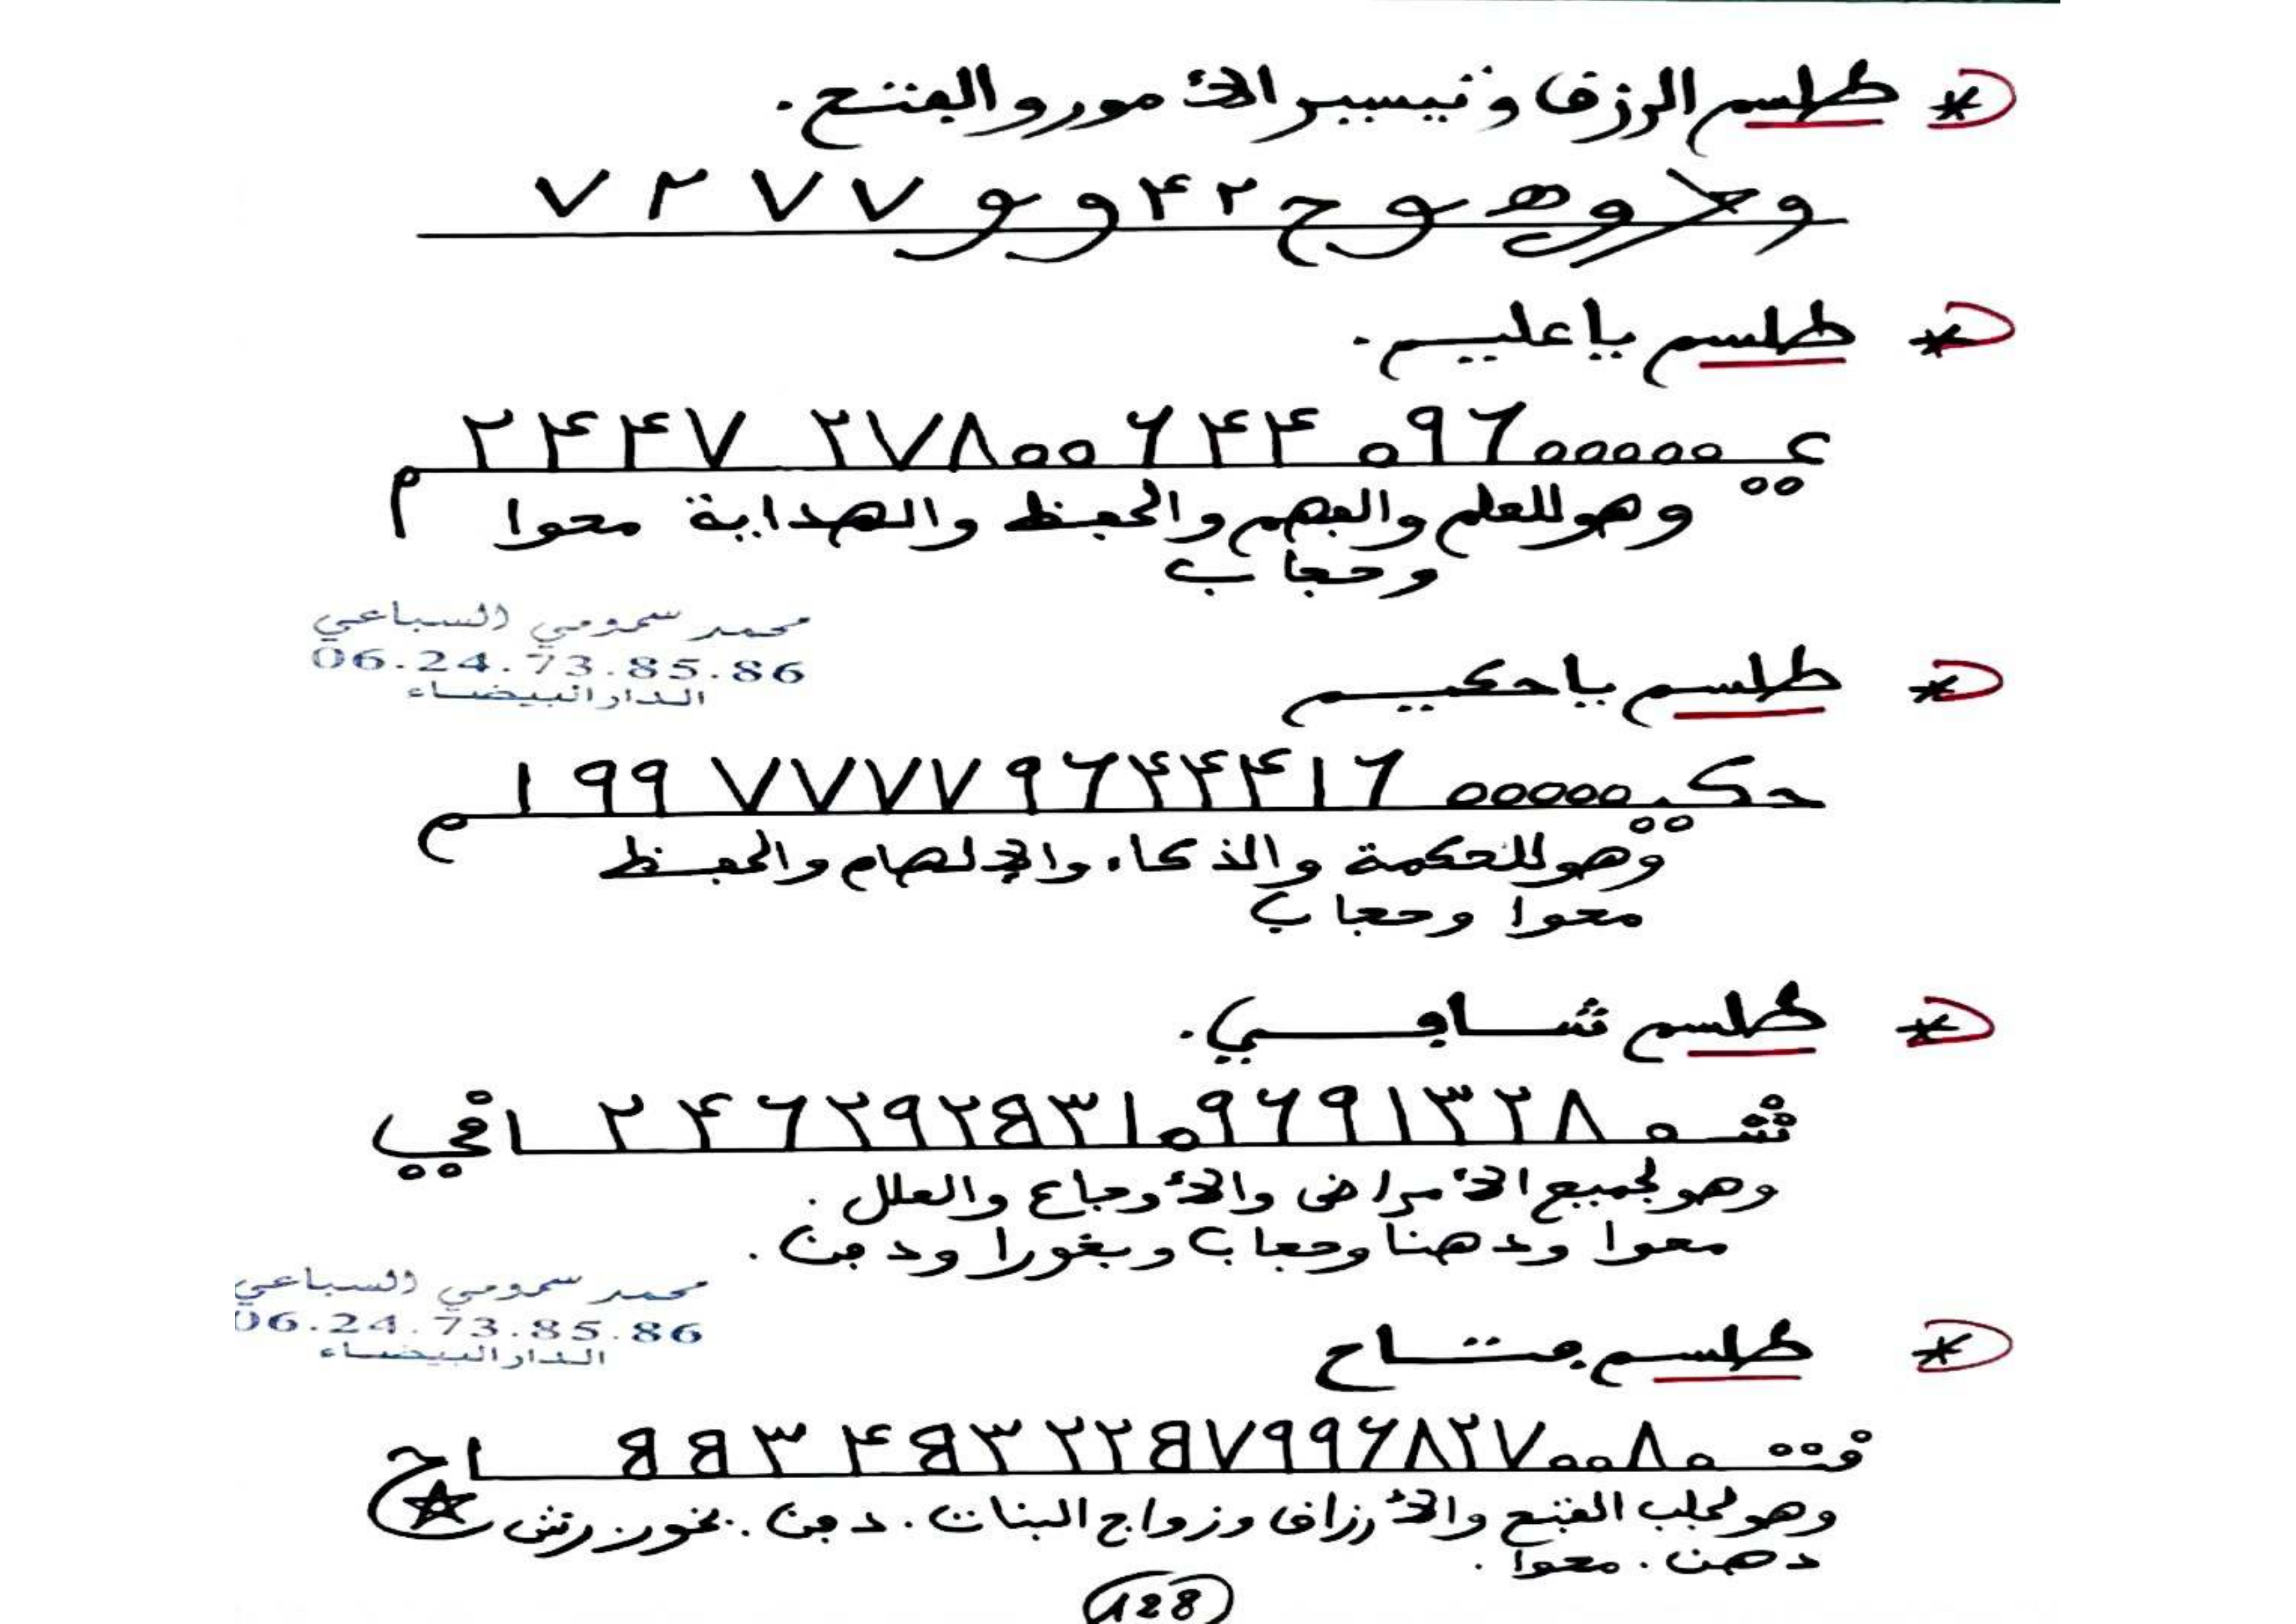 طلسم الرزق و تيسير الأمور و الفتح.
طلسم يا عليم.
ع ٠٠٠٠٠٦٩٠٤٤٦٠٠٨٧٢ ٧٤٤٢ م
وهو للعلم والفهم والحفظ والهداية محوا
وحجاب
محمد سمومي السباعي
06.24.73.85.86
الدار البيضاء
طلسم يا حكيم
حكيـ ٠٠٠٠٠ ٦١٤٤٤٦٩٧٧٧٧ ٩٩١ م
وهو للحكمة والذكاء والإلهام والحفظ
محوا وحجاب
طلسم شافي.
شـ ٠٨٢٣١٩٦٩٠١٣٩٢٩٢٦٤٢ افي
وهو لجميع الأمراض والأوجاع والعلل.
محوا ودهنا وحجاب وبخورا ودفن.
محمد سمومي السباعي
06.24.73.85.86
الدار البيضاء
طلسم فتاح
فتـ ٠٨٠٠٧٢٨٦٩٩٧٩٢٢٣٩٤٣٩٩ اح
وهو لجلب الفتح والأرزاق وزواج البنات. دفن. بخور. رش
دهن. محوا.
128